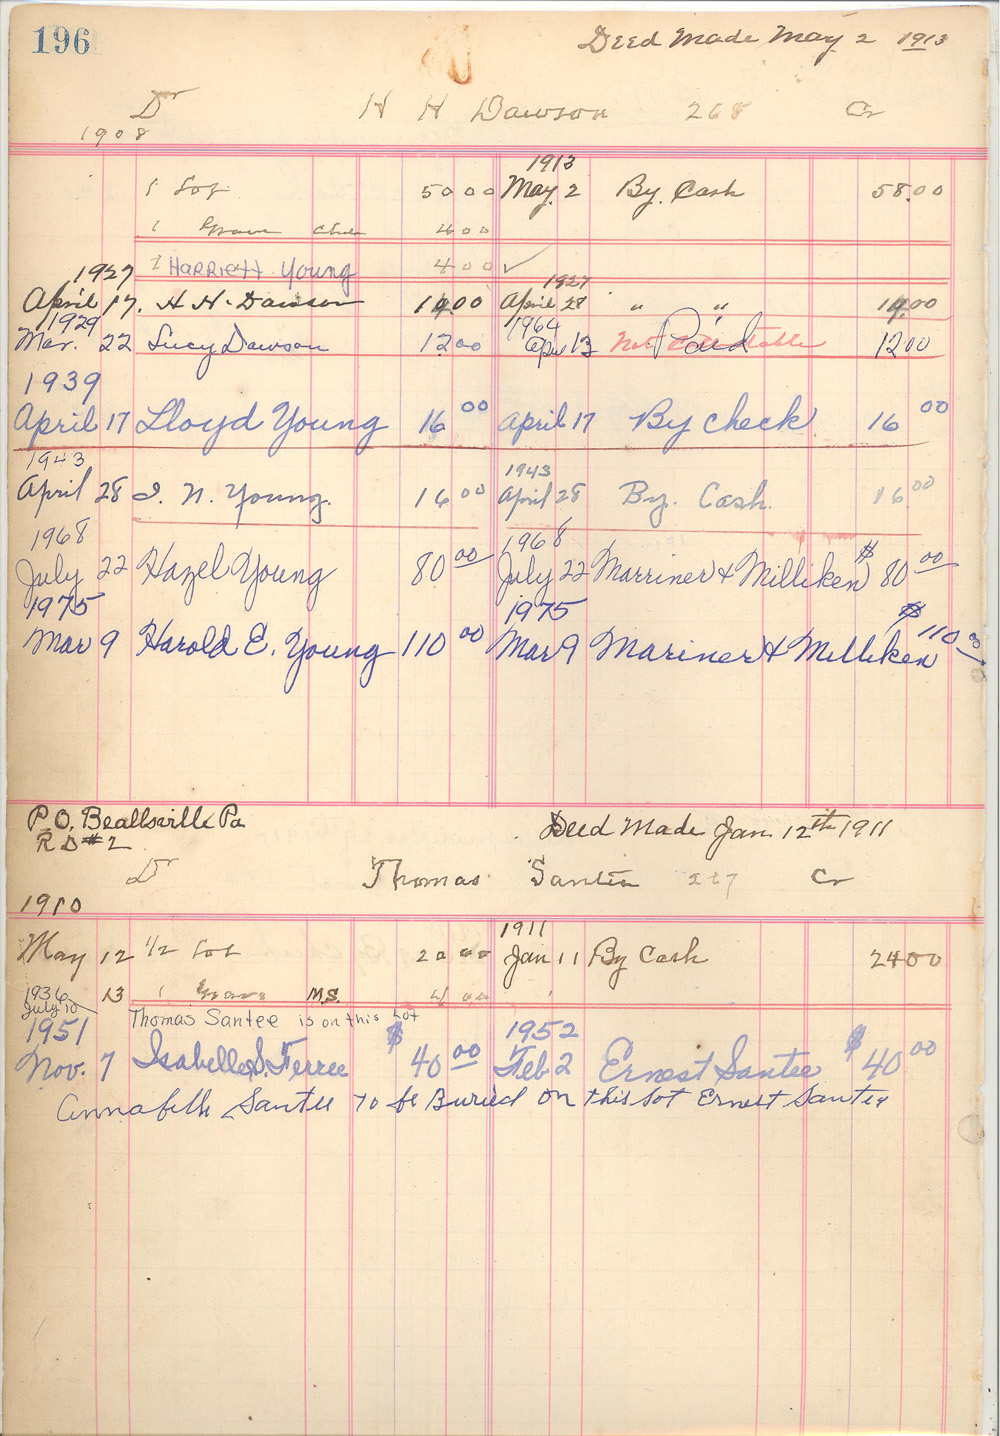 196
Deed Made May 2 1913
Dr H H Dawson 268 Cr
1908
1913
1 Lot 50 00 May. 2 By Cash 58.00
1 Grave 4 00
1 Harriett Young 4 00 ✓
1927 1927
April 17. H H. Dawson 14 00 April 28 " " 14.00
1929 1964
Mar. 22 Lucy Dawson 12 00 Apr 13 Paid 12 00
1939
April 17 Lloyd Young 16 00 April 17 By check 16 00
1943 1943
April 28 I. N. Young. 16 00 April 28 By. Cash. 16 00
1968 1968
July 22 Hazel Young 80 00 July 22 Marriner & Milliken $ 80 00
1975 1975
Mar 9 Harold E. Young 110 00 Mar 9 Mariner & Milliken $ 110 00
P O. Beallsville Pa Deed Made Jan 12th 1911
R D # 2
Dr Thomas Santee 267 Cr
1910
1911
May 12 1/2 Lot 20 00 Jan 11 By Cash 24 00
13 1 Grave M.S. 4 00
1936 July 10 Thomas Santee is on this Lot
1951 1952
Nov. 7 Isabelle S. Ferree $ 40 00 Feb 2 Ernest Santee $ 40 00
Annabelle Santee to be Buried on this Lot Ernest Santee